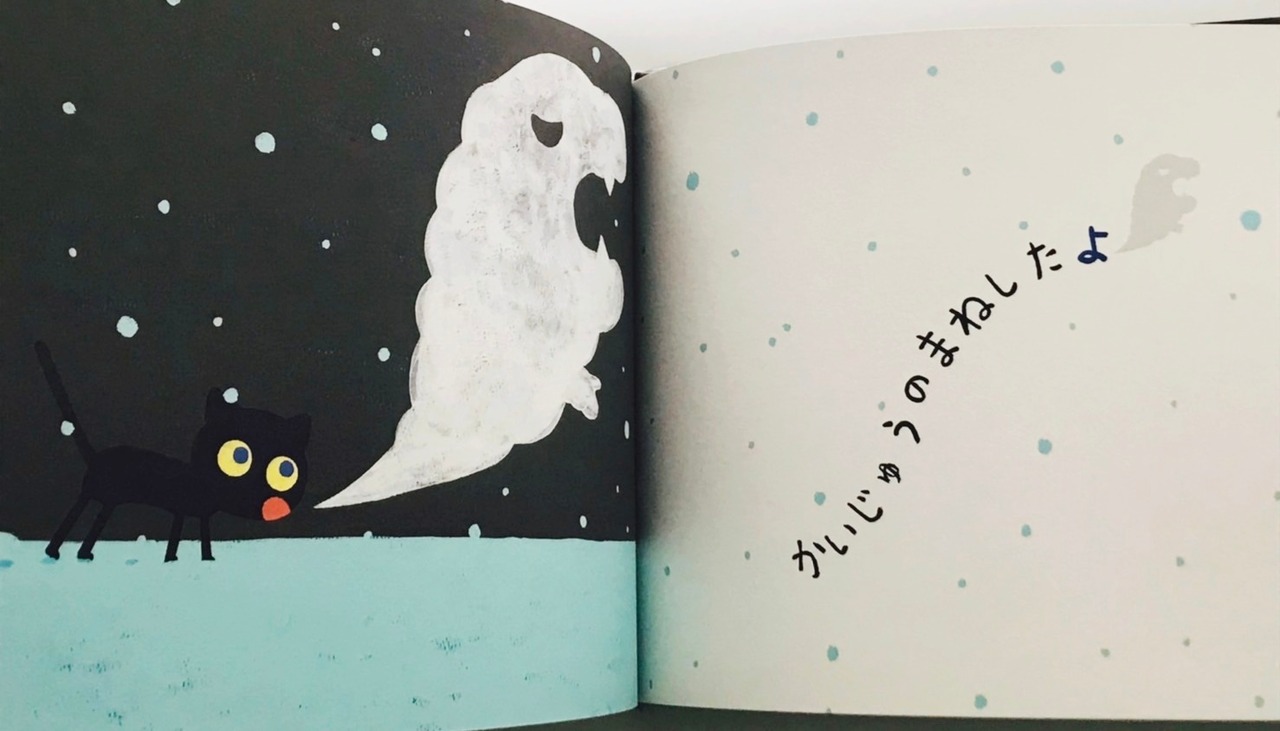 かいじゅうのまねしたよ